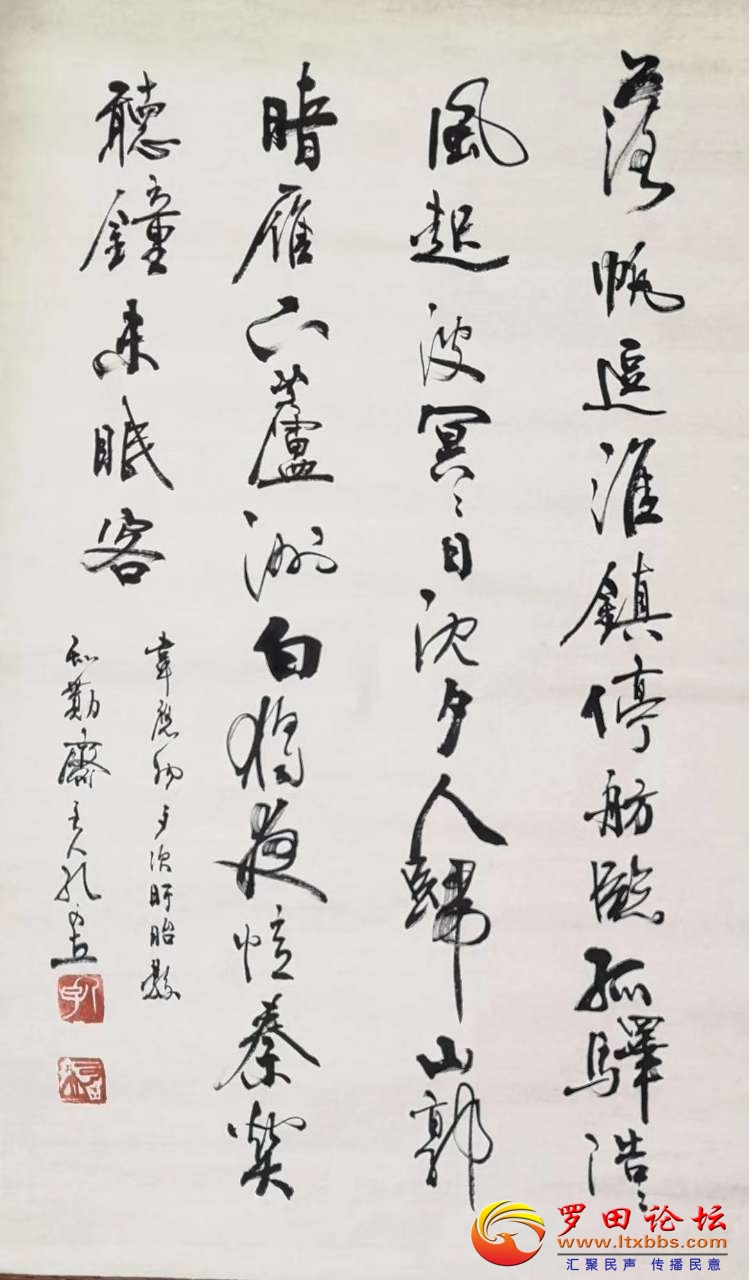 落帆逗淮鎮停舫臨孤驛浩〻
風起波冥〻日沈夕人歸山郭
暗雁下蘆洲白獨夜憶秦關
聽鐘未眠客
韋應物夕次盱眙縣
勤齋主人孔
罗田论坛
www.ltxbbs.com
汇聚民声 传播民意